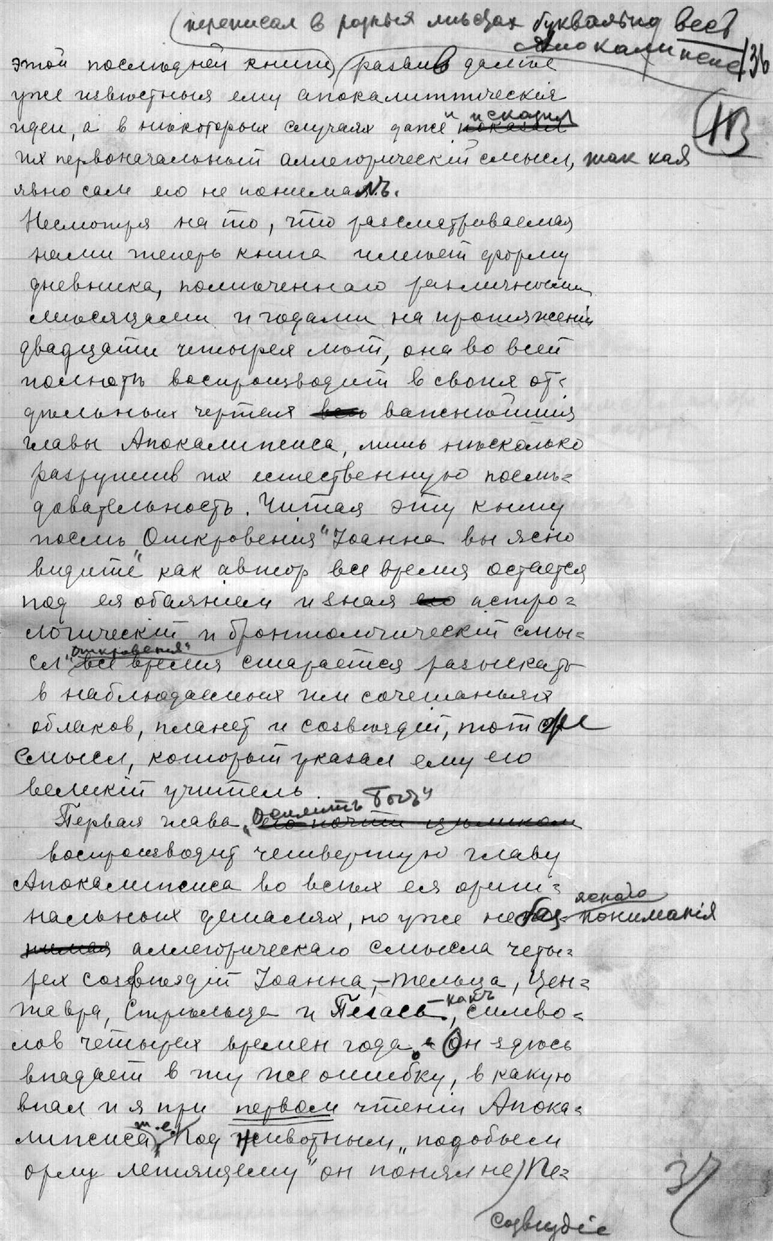 (переписал в разныя мѣстах буквально весь
Апокалипсис
136
этой послѣдней книги) развив далѣе
уже извѣстныя ему апокалиптическія
идеи, а в нѣкоторых случаях даже и исказил
13
их первоначальный аллегорическій смысл, так как
явно сам его не понимал.
Несмотря на то, что разсматриваемая
нами теперь книга имѣет форму
дневника, помѣченнаго различными
мѣсяцами и годами на протяженіи
двадцати четырех лѣт, она во всей
полнотѣ воспроизводит в своих от-
дѣльных чертах важнѣйшія
главы Апокалипсиса, лишь нѣсколько
разрушив их естественную послѣ-
довательность. Читая эту книгу
послѣ Откровения "Іоанна вы ясно
видите" как автор все время остается
под ея обаянием и зная астро-
логическій и бронтологическій смы-
сл "откровения" все время старается разыскать
в наблюдаемых им сочетаньях
облаков, планет и созвѣздій, тот же
смысл, который указал ему его
великій учитель.
Первая глава "Осилит Богъ"
воспроизводит четвертую главу
Апокалипсиса во всѣх ея ориги-
нальных деталях, но уже без яснаго пониманія
аллегорическаго смысла четы-
рех созвѣздій Іоанна,—Тельца, Цен-
тавра, Стрѣльца и Пегаса—какъ симво-
лов четырех времен года. Он здѣсь
впадает в ту же ошибку, в какую
впал и я при первом чтеніи Апока-
липсиса, т.е. под животным "подобьем
орлу летящему" он понял не Пе-
созвѣздіе
37